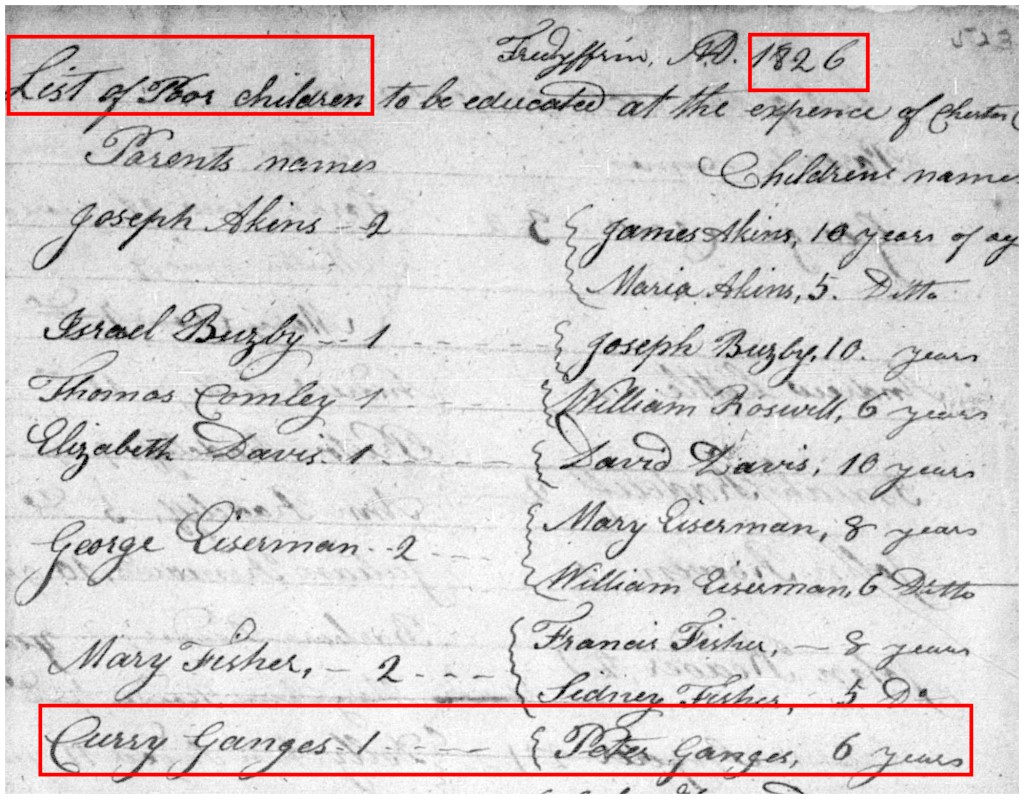 523
Tredyffrin, AD. 1826
List of Poor children to be educated at the expence of Chester C
Parents names
Childrens names
Joseph Akins - 2
James Akins, 10 years of ag
Maria Akins, 5. Ditto
Israel Buzby - - 1
Joseph Buzby, 10. years
Thomas Comley 1
William Roswell, 6 years
Elizabeth Davis. 1
David Davis, 10 years
George Eiserman - - 2
Mary Eiserman, 8 years
William Eiserman, 6 Ditto
Mary Fisher, - 2
Francis Fisher, - 8 years
Sidney Fisher, 5 Do
Curry Ganges - 1
Peter Ganges, 6 years